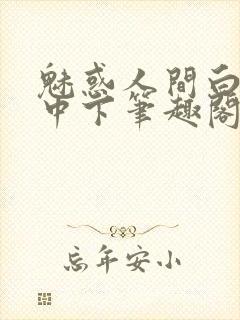 魅惑人間白
中下筆趣閣
忘年安小